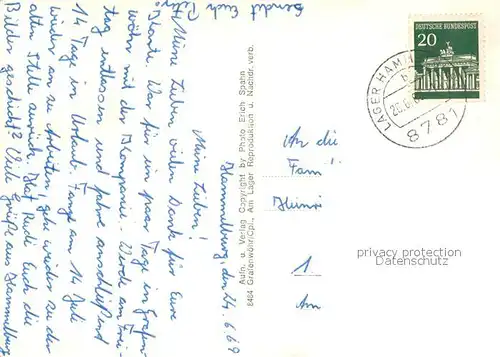 Hammelburg, den 24.6.69
Meine Lieben!
Meine Lieben vielen Dank für Eure
Karte. War für ein paar Tage in Grafen-
wöhr mit der Kompanie. Werde am Frei-
tag entlassen und fahre anschließend
14 Tage in Urlaub. Fange am 14 Juli
wieder an zu Arbeiten, gehe wieder zu der
alten Stelle zurück. Hat Rudi Euch die
Bilder geschickt? Viele Grüße aus Hammelburg
sendet Euch
Aufn. u. Verlag Copyright by Photo Erich Spahn
8484 Grafenwöhr/Opf., Am Lager Reproduktion u. Nachdr. verb.
DEUTSCHE BUNDESPOST
20
LAGER HAM
b
8781
An die
Fam.
Heinri
1
Am
privacy protection
Datenschutz